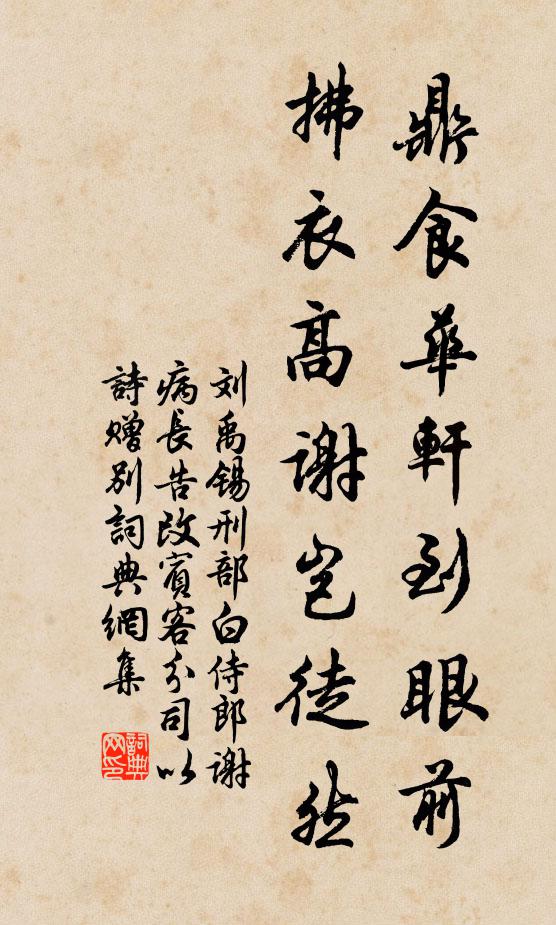 鼎食華軒到眼前
拂衣高謝豈徒然
刘禹锡刑部白侍郎謝
病長告改賓客分司以
詩赠别詞典網集
詞典
网印